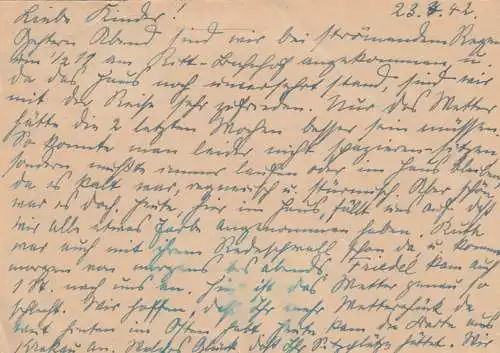 Liebe Kinder! 23.8.42.
Gestern Abend sind wir bei strömendem Regen
um 1/2 19 am Bahnhof angekommen, u.
da das Haus noch unversehrt stand, sind wir
mit der Reise sehr zufrieden. Nur das Wetter
hätte die 2 letzten Wochen besser sein müssen.
So konnte man leider nicht spazieren-sitzen
sondern mußte immer laufen oder im Haus bleiben
da es kalt war, regnerisch u. stürmisch. Aber schön
war es doch, heute, hier im Haus, fällt uns auf daß
wir alle etwas Farbe angenommen haben. Ruth
war auch mit ihrem Redeschwall schon da u. kommt
morgen von morgens bis abends. Friedel kam auf
1 St. nach uns an. Hier ist das Wetter genau so
schlecht. Wir hoffen, daß Ihr mehr Wetterglück da
hinten im Osten habt. Heute kam die Karte aus
Krakau an. Welches Glück daß Ihr Sitzplätze hattet. Wir